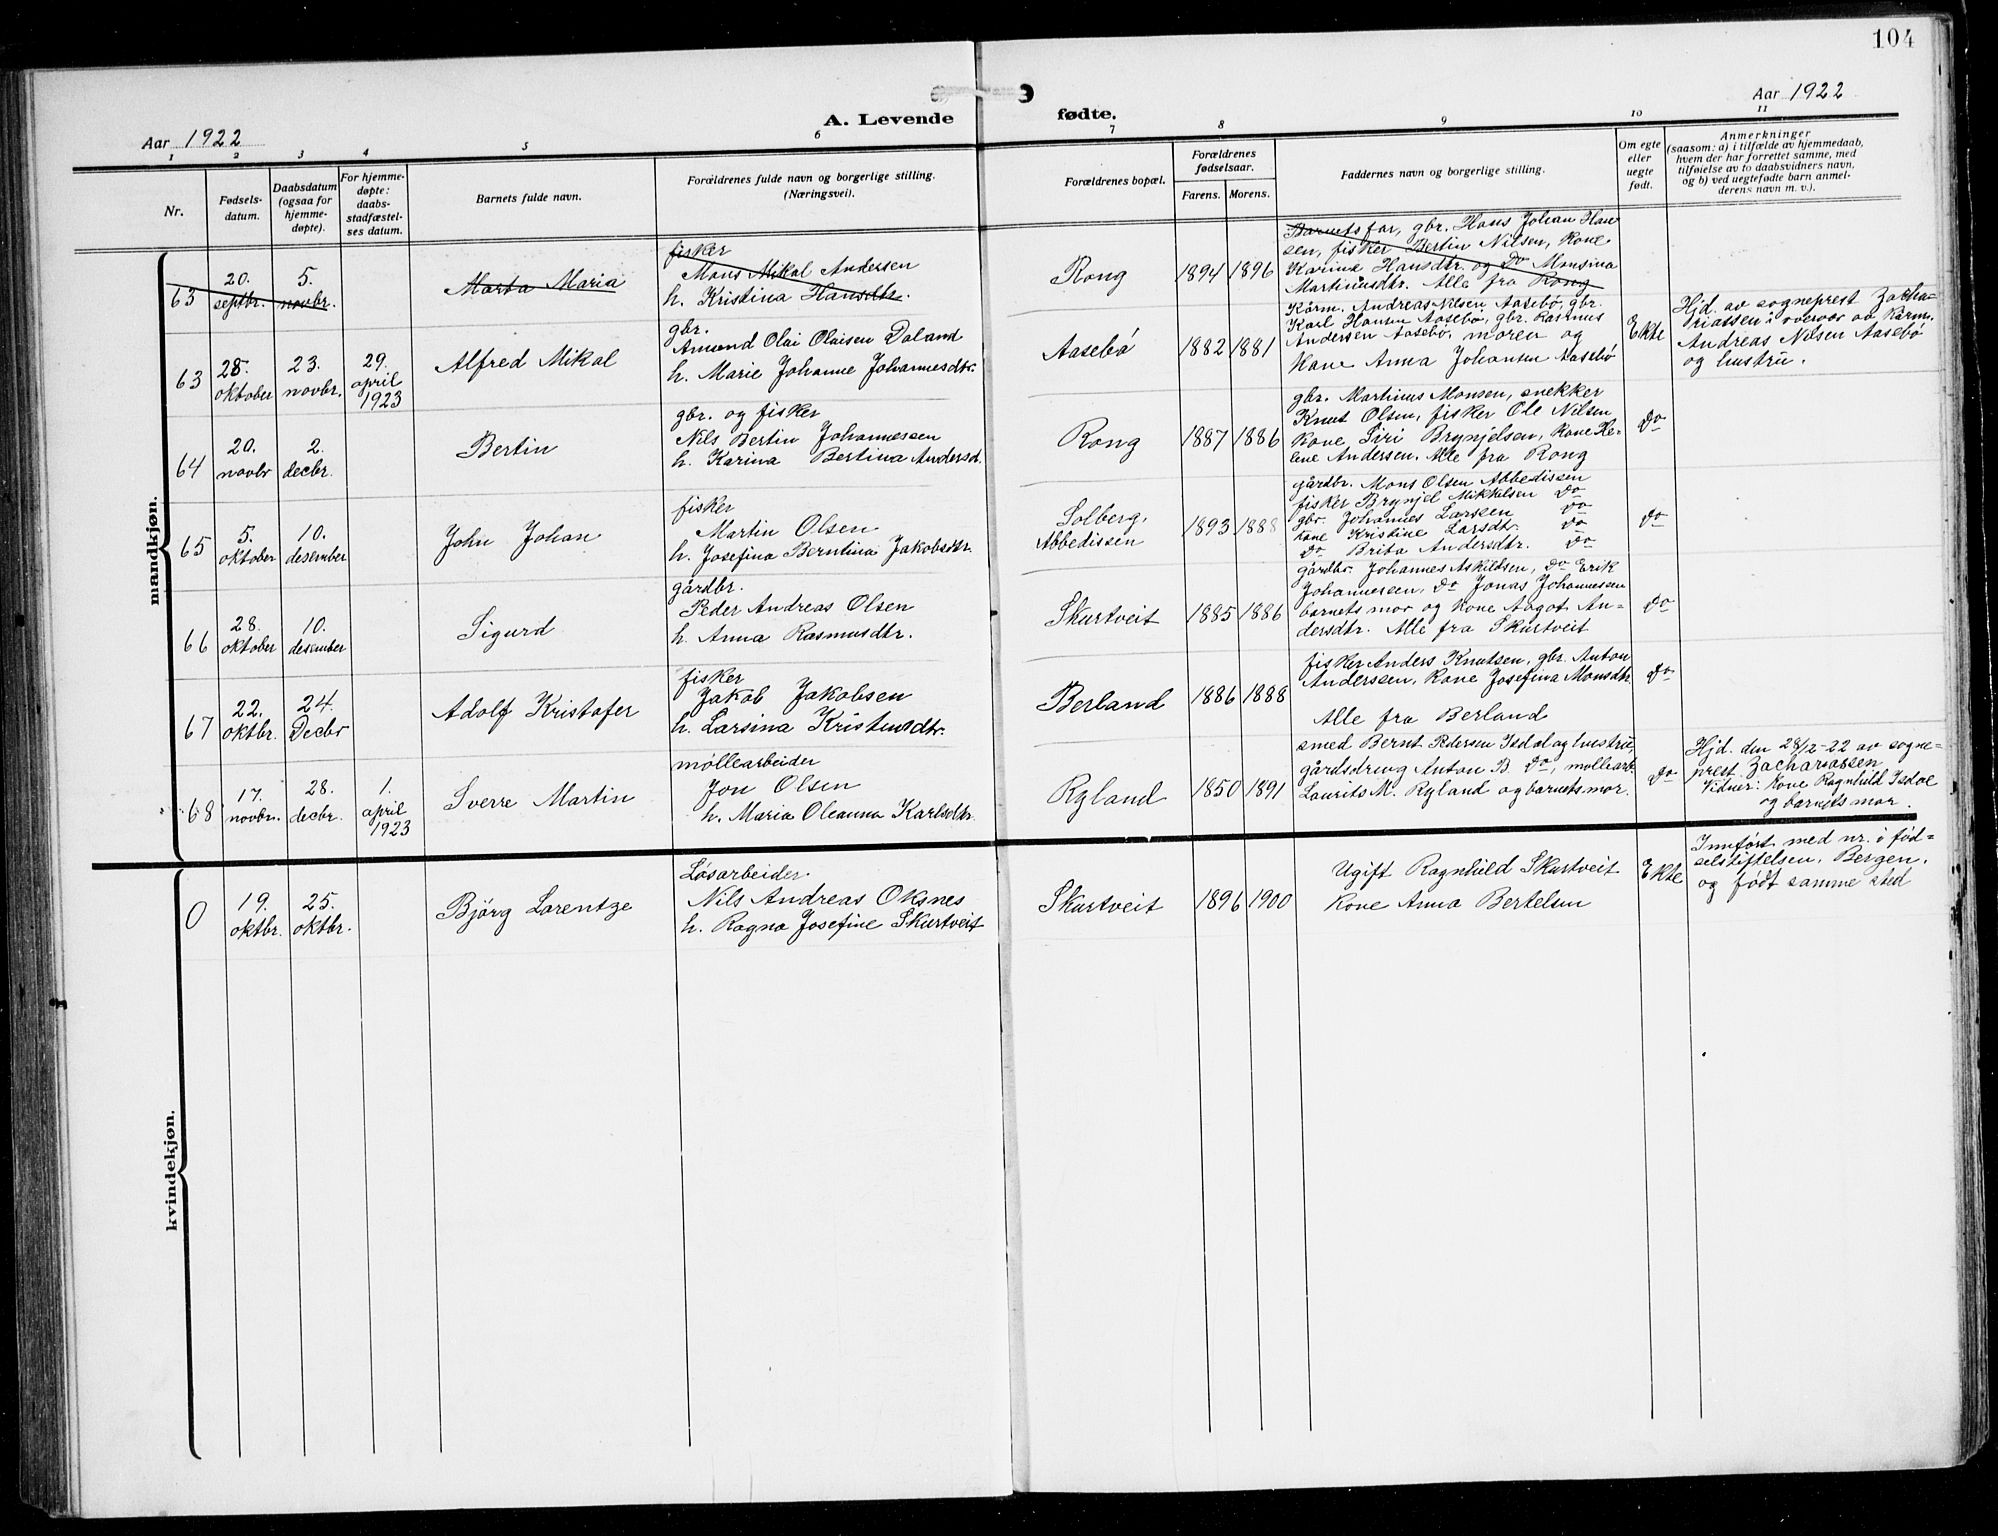 104
Aar 1922
A. Levende fødte.
Aar 1922
1 2 3 4 5 6 7 8 9 10 11
Nr.
Fødsels-
datum.
Daabsdatum
(ogsaa for
hjemme-
døpte).
For hjemme-
døpte:
daabs-
stadfæstel-
ses datum.
Barnets fulde navn.
Forældrenes fulde navn og borgerlige stilling.
(Næringsvei).
Forældrenes bopæl.
Forældrenes
fødselsaar.
Farens. Morens.
Faddernes navn og borgerlige stilling.
Om egte
eller
uegte
født.
Anmerkninger
(saasom: a) i tilfælde av hjemmedaab,
hvem der har forrettet samme, med
tilføielse av to daabsvidners navn,
og b) ved uegtefødte barn anmel-
derens navn m. v.).
mandkjøn.
63
20.
septbr.
5.
novbr.
Marta Maria
fisker
Mons Mikal Andersen
h. Kristina Hansdtr.
Rong
1894 1896
Barnets far, gbr. Hans Johan Han
sen, fisker Bertin Nilsen, Kone
Karine Hansdtr. og do Monsina
Martinusdtr. Alle fra Rong
63
25.
oktober
23.
novbr.
29.
april
1923
Alfred Mikal
gbr.
Amund Olai Olaisen Daland
h. Marie Johanne Johannesdtr.
Aasebö
1882 1881
Kårm. Andreas Nilsen Aasebö, gbr.
Karl Hansen Aasebö, gbr. Rasmus
Andersen Aasebö, moren og
Kone Anna Johansen Aasebö
Ekte
Hjd. av sogneprest Zacha-
riassen i overvær av Kårm.
Andreas Nilsen Aasebö
og hustru.
64
20.
novbr
2.
decbr.
Bertin
gbr. og fisker
Nils Bertin Johannessen
h. Karina Bertina Andersd.
Rong
1887 1886
gbr. Martinus Monsen, snekker
Knut Olsen, fisker Ole Nilsen
Kone Siri Brynjelsen, Kone He-
lene Andersen. Alle fra Rong
do
65
5.
oktober
10.
desember
John Johan
fisker
Martin Olsen
h. Josefina Berntina Jakobsdtr.
Solberg,
Abbedissen
1893 1888
gårdbr. Mons Olsen Abbedissen
fisker Brynjel Mikkelsen do
gbr. Johannes Larsen do
kone Kristine Larsdtr. do
do Brita Andersdtr. do
do
66
28.
oktober
10.
desember
Sigurd
gårdbr.
Peder Andreas Olsen
h. Anna Rasmusdtr.
Skurtveit
1885 1886
gårdbr. Johannes Askildsen, do Erik
Johannessen, do Jonas Johannessen
barnets mor og kone Aagot An-
dersdtr. Alle fra Skurtveit
do
67
22.
oktbr.
24.
Decbr
Adolf Kristofer
fisker
Jakob Jakobsen
h. Larsina Kristensdtr.
Berland
1886 1888
fisker Anders Knutsen, gbr. Anton
Anderssen, Kone Josefina Monsdtr.
Alle fra Berland
do
68
17.
novbr.
28.
decbr.
1.
april
1923
Sverre Martin
møllearbeider
Jon Olsen
h. Maria Oleanna Karlsdtr.
Ryland
1850 1891
smed Bernt Pedersen Isdal og hustru,
gårdsdreng Anton B. do, møllearb.
Laurits M. Ryland og barnets mor.
do
Hjd. den 28/12-22 av sogne-
prest Zachariassen
Vidner: Kone Ragnhild Isdal
og barnets mor.
kvindekjøn.
0
19.
oktbr.
25.
oktbr.
Björg Lorentze
Løsarbeider
Nils Andreas Oksnes
h. Ragna Josefine Skurtveit
Skurtveit
1896 1900
Ugift Ragnhild Skurtveit
Kone Anna Bertelsen
Ekte
Innfört med nr. i föd-
selstiftelsen, Bergen,
og födt samme sted